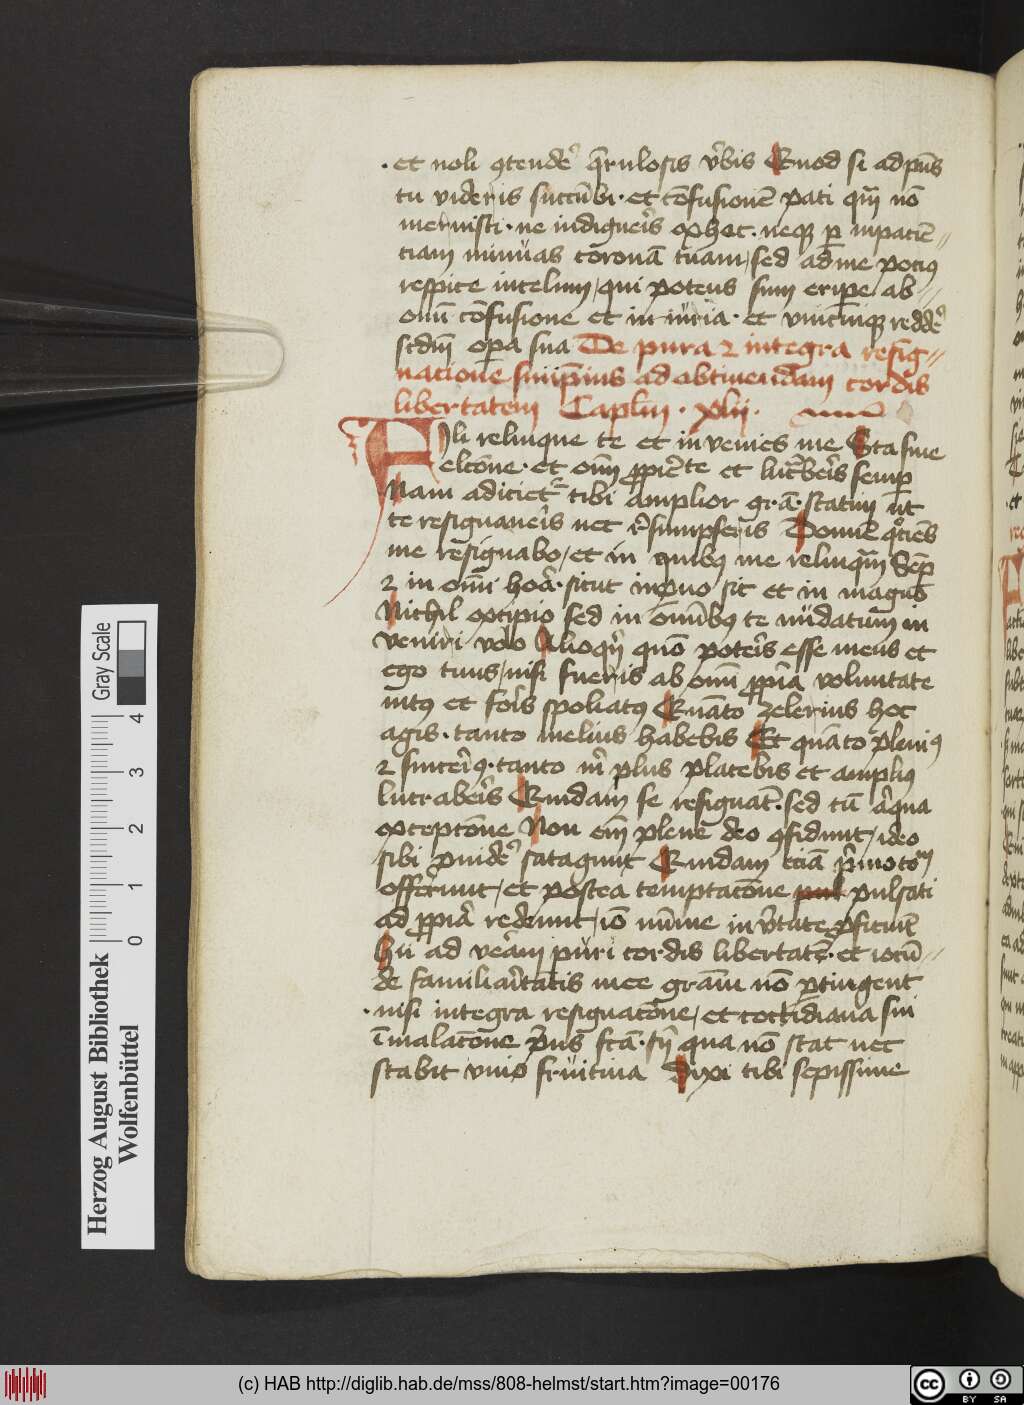 et noli ɔtendeˀ q̄rulosis v̄bis Quod si ad p̄ns
tu videris succūbi · et cōfusionē pati quā nō
meruisti · ne indigneris ex hoc · neqꝫ ꝑ inpaciē
ciam minuas coronā tuam / sed ad me pocius
respice in celum / qui potens sum eriꝑe ab
omī cōfusione et in iuria · et vnicuiqꝫ reddeˀ
scdm̄ oꝑa sua De pura ⁊ integra resig
nacione suiip̄ius ad obtinendam cordis
libertatem Caplm · xlij ·
Fili relinque te et in venies me Sta sine
elcōne · et omī ꝓpietate et lucˀbeˀis semꝑ
Nam adicietˀ tibi amplior grā · statim ut
te resignaueˀis nec rˀsumpseris Domīe qͦciēs
me resignabo / et in quibꝰ me relinquā Seꝑ
⁊ in omī horā · sicut in puo sic et in magnis
Nichil excipio sed in omībꝰ te nudatum in
veniri volo Alioqn̄ quō poteˀis esse meus et
ego tuus / nisi fueris ab omī ꝓp̄ia voluntate
intꝰ et foris spoliatꝰ Quāto zelerius hoc
agis · tanto melius habebis Et quāto pleniꝰ
⁊ sinceriꝰ · tanto mˀ plus placebis et ampliꝰ
lucrabeˀis Quidam se resignāt · sed cū aˀqua
excepcōne Non em̄ plene deo ɔfidunt / ideo
sibi ꝓuideˀ satagunt Quidam eciā pˀmo totm̄
offerunt / et postea temptacōne pul pulsati
ad ꝓp̄ia redeunt / iō mīme in vˀtute ꝓficiūt
hii ad veram puri cordis libertatē · et iocū
de familiaritatis mee grām nō ꝑtingent
nisi integra resignacōne / et cottidiana sui
īmolacōne pˀus fcā · sn̄ qua nō stat nec
stabit vnio fruitiua Dixi tibi sepissime
Herzog August Bibliothek
Wolfenbüttel
Gray Scale
0 1 2 3 4
(c) HAB http://diglib.hab.de/mss/808-helmst/start.htm?image=00176
cc BY SA